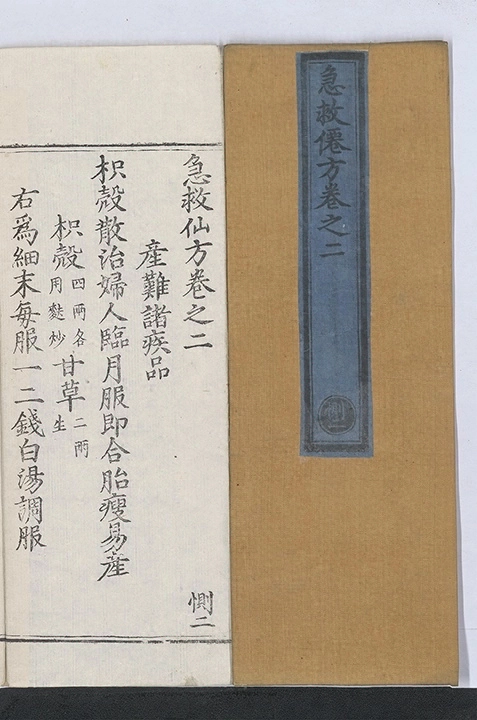 急救僊方卷之二
惻二
急救仙方卷之二
惻二
産難諸疾品
枳殼散治婦人臨月服即合胎瘦易産
枳殼四兩各用麩炒甘草二兩生
右爲細末毎服一二錢白湯調服